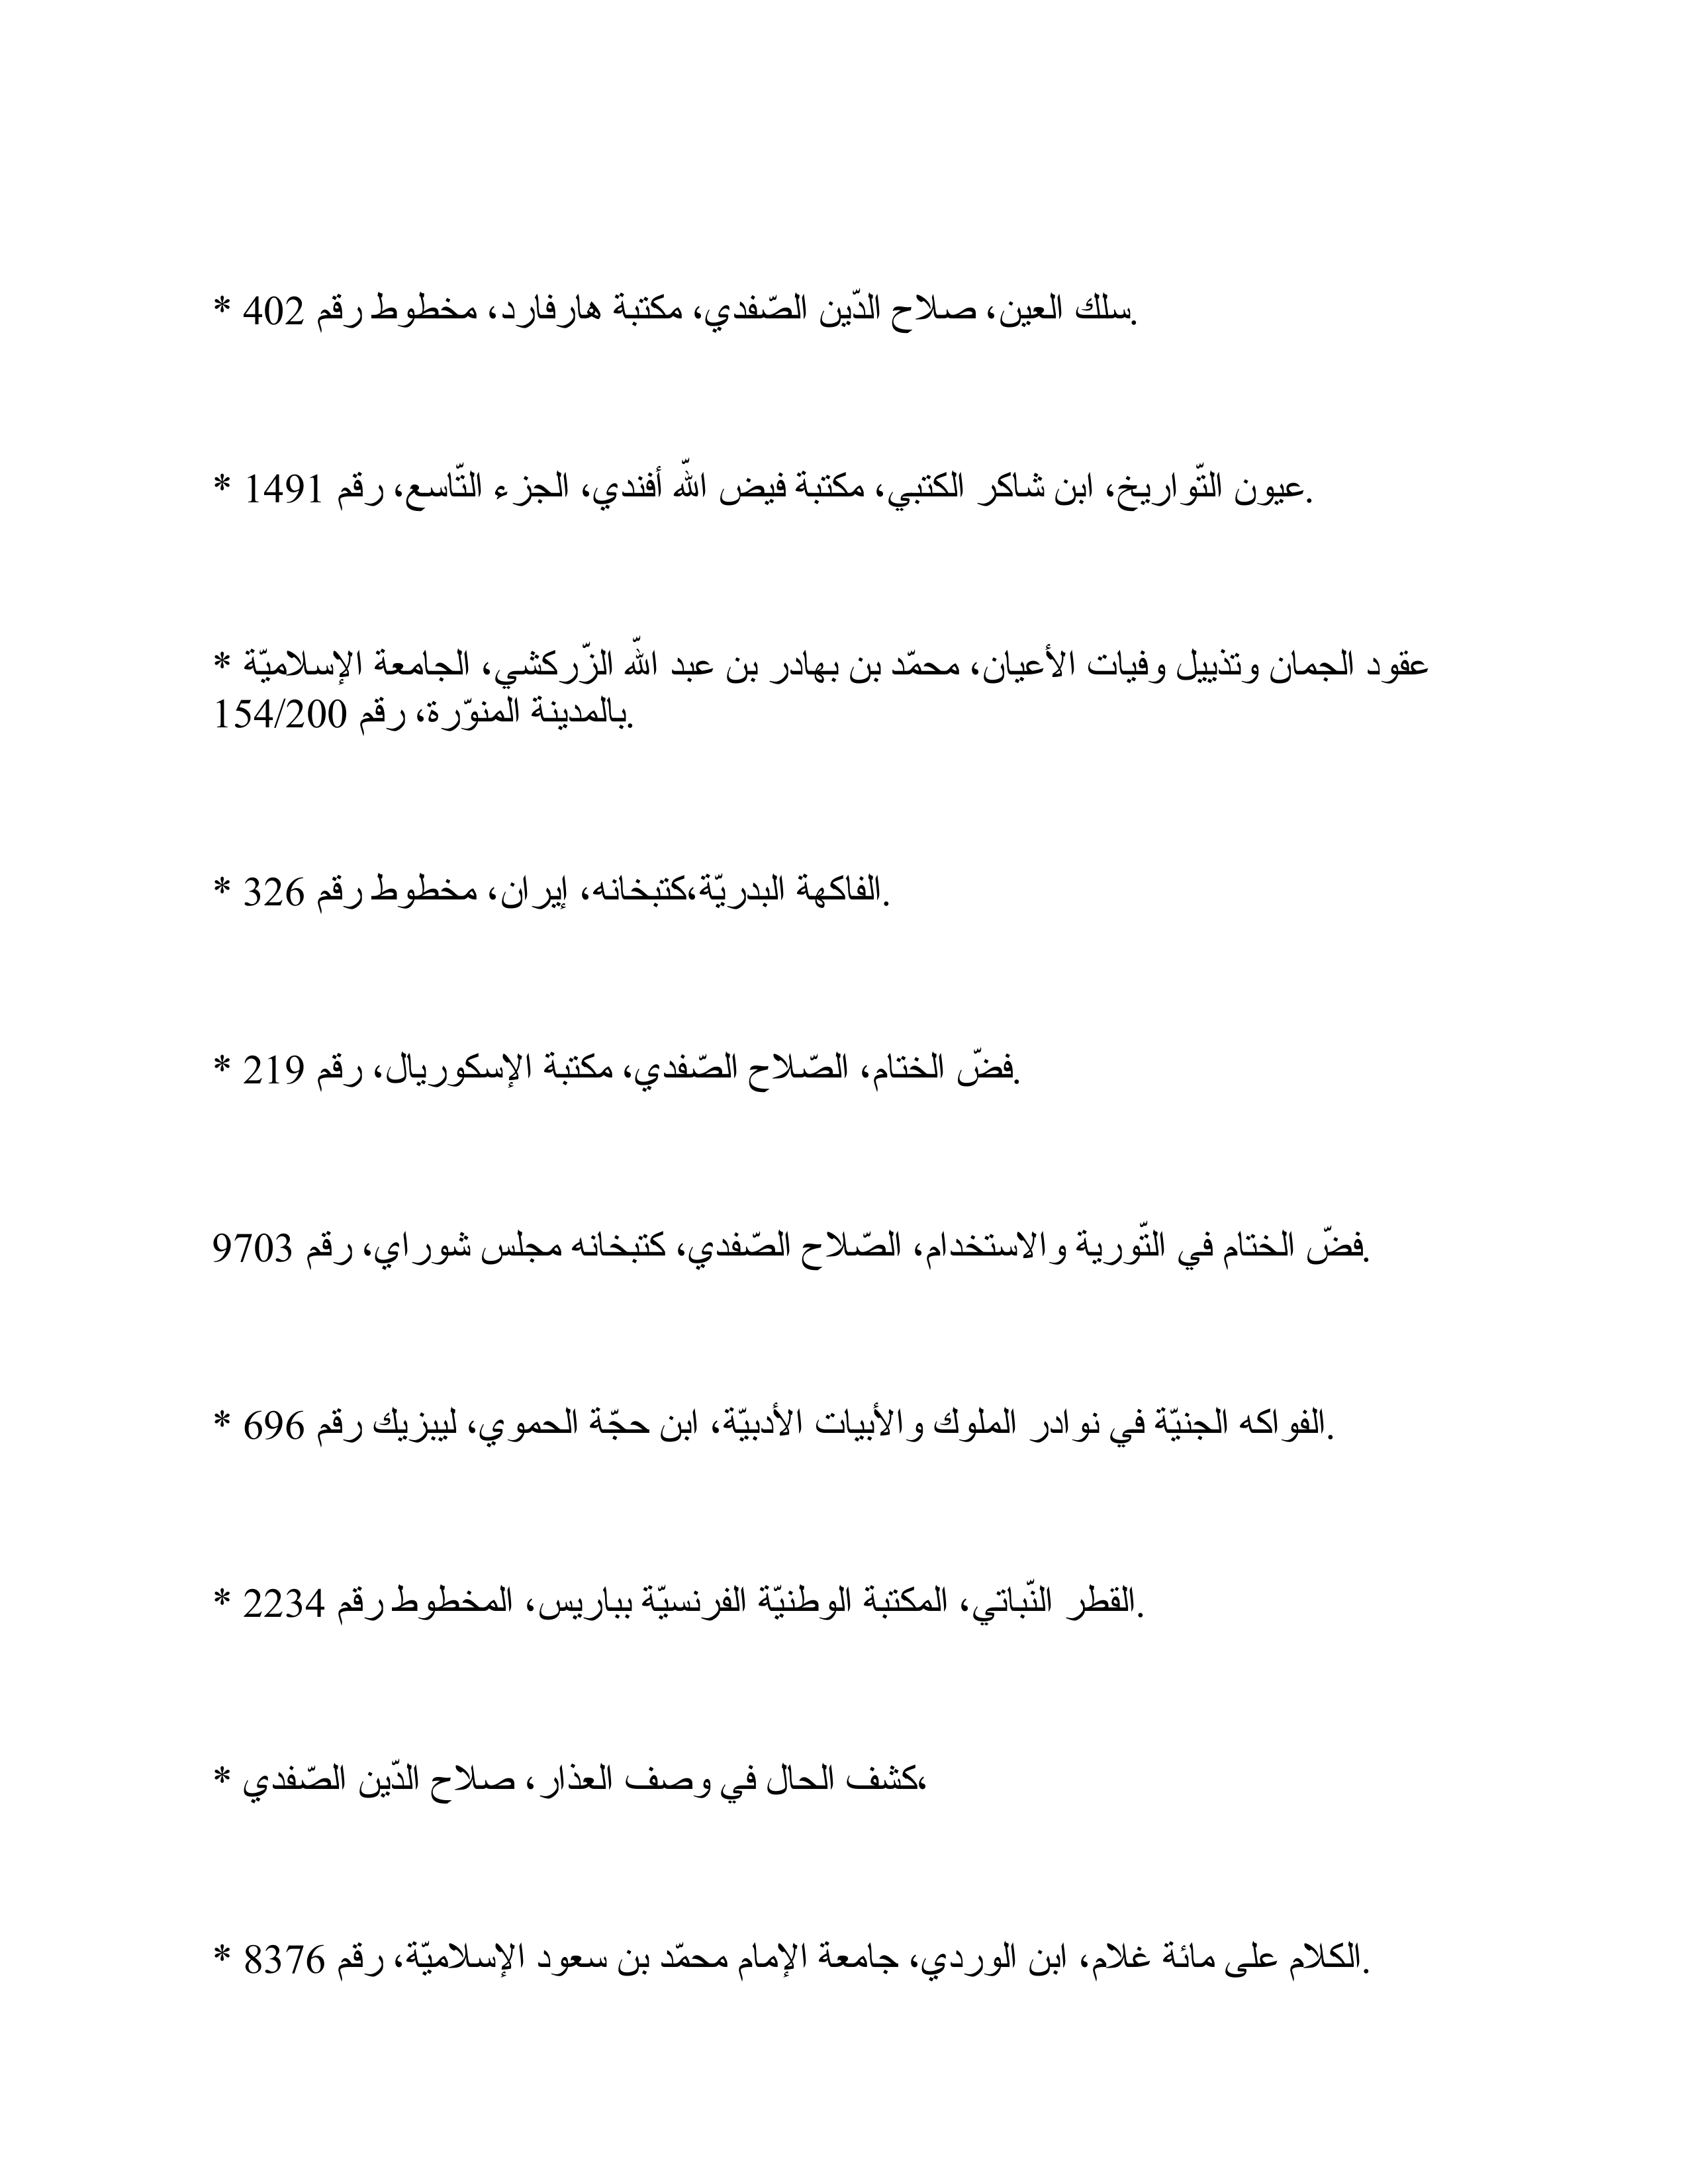 * سلك العين، صلاح الدّين الصّفدي، مكتبة هارفارد، مخطوط رقم 402.
* عيون التّواريخ، ابن شاكر الكتبي، مكتبة فيض الله أفندي، الجزء التّاسع، رقم 1491.
* عقود الجمان وتذييل وفيات الأعيان، محمّد بن بهادر بن عبد الله الزّركشي، الجامعة الإسلاميّة
بالمدينة المنوّرة، رقم 154/200.
* الفاكهة البدريّة،كتبخانه، إيران، مخطوط رقم 326.
* فضّ الختام، الصّلاح الصّفدي، مكتبة الإسكوريال، رقم 219.
فضّ الختام في التّورية والاستخدام، الصّلاح الصّفدي، كتبخانه مجلس شوراي، رقم 9703.
* الفواكه الجنيّة في نوادر الملوك والأبيات الأدبيّة، ابن حجّة الحموي، ليبزيك رقم 696.
* القطر النّباتي، المكتبة الوطنيّة الفرنسيّة بباريس، المخطوط رقم 2234.
* كشف الحال في وصف العذار، صلاح الدّين الصّفدي،
* الكلام على مائة غلام، ابن الوردي، جامعة الإمام محمّد بن سعود الإسلاميّة، رقم 8376.